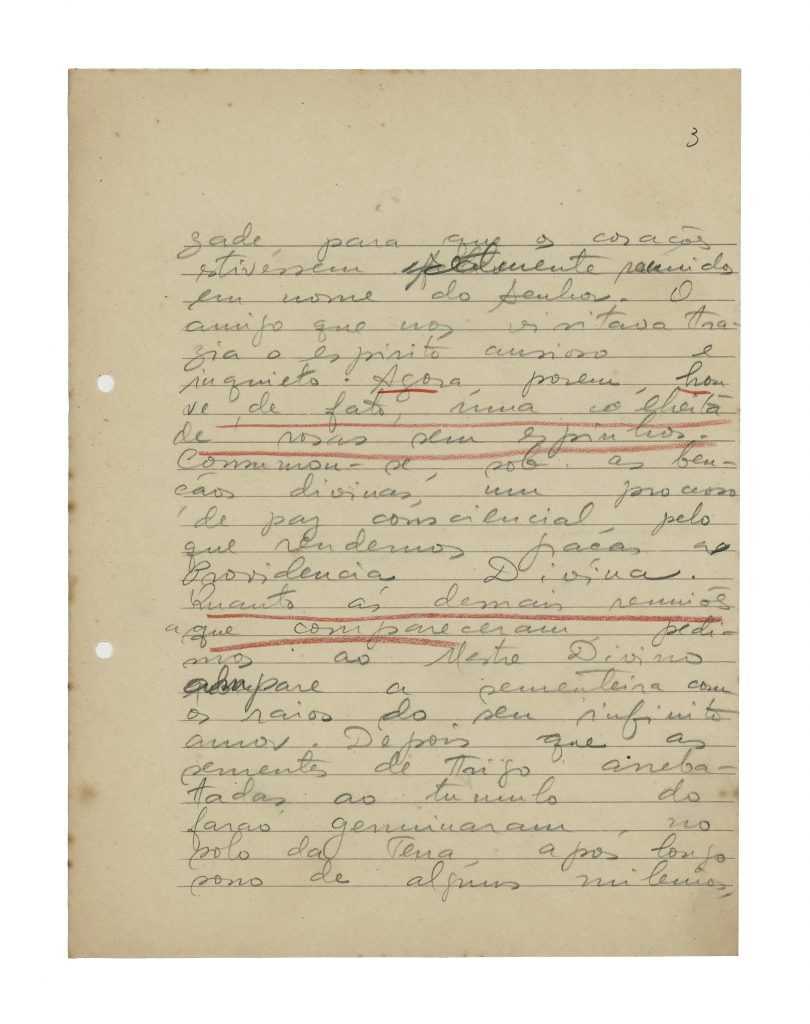 3
zade para que os corações
estivéssem realmente reunidos
em nome do Senhor. O
amigo que nos visitava tra-
zia o espirito ansioso e
inquieto. Agora, porem, hou
ve, de fato, uma colheita
de rosas sem espinhos.
Consumou-se, sob as ben-
çãos divinas, um processo
de paz consciencial, pelo
que rendemos graças a
Providencia Divina.
Quanto ás demais reuniões
a que compareceram, pedi-
mos ao Mestre Divino
ampare a sementeira com
os raios do seu infinito
amor. Depois que as
sementes de trigo arreba-
tadas ao tumulo do
faraó germinaram no
solo da Terra após longo
sono de alguns milenios,